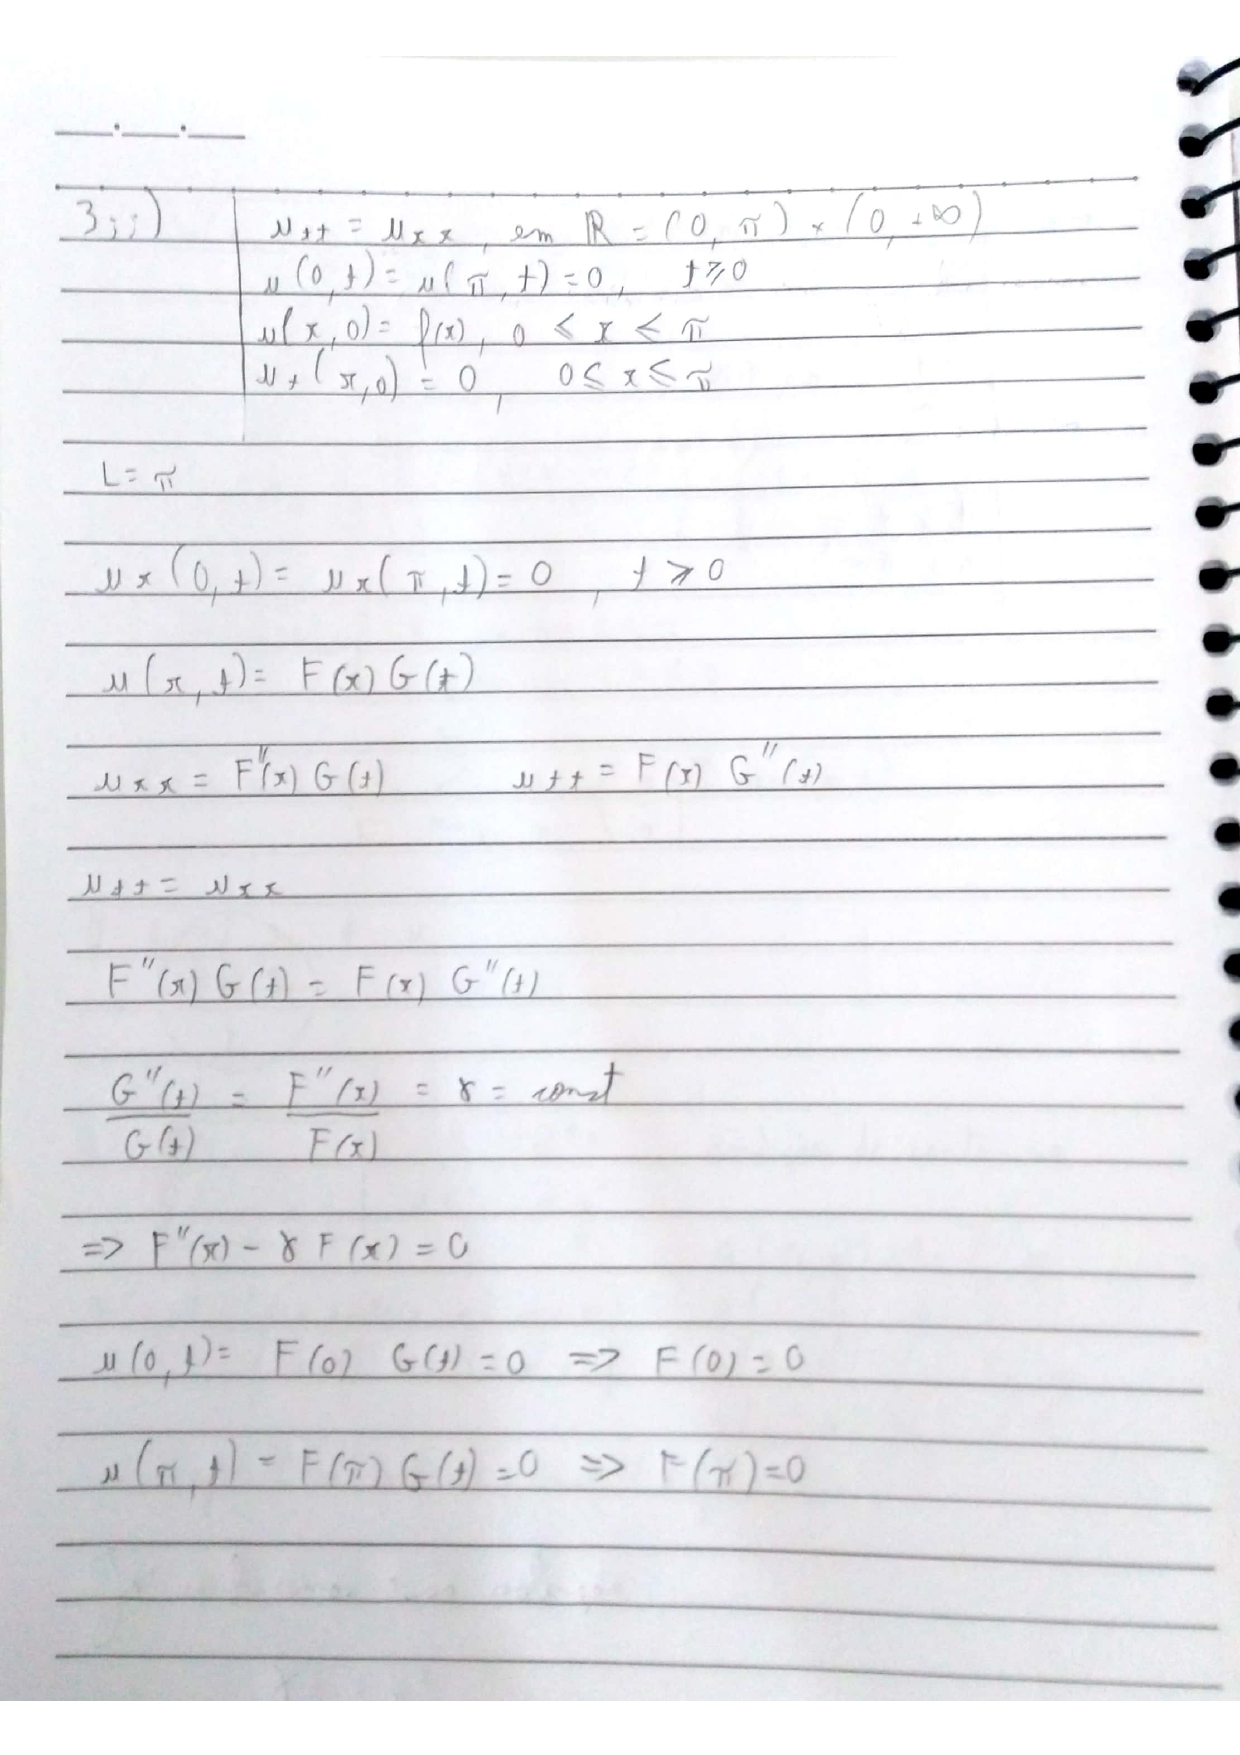 3ii)
u_tt = u_xx, em R = (0, π) × (0, +∞)
u(0, t) = u(π, t) = 0, t ≥ 0
u(x, 0) = f(x), 0 ≤ x ≤ π
u_t(x, 0) = 0, 0 ≤ x ≤ π
L = π
u_x(0, t) = u_x(π, t) = 0, t ≥ 0
u(x, t) = F(x) G(t)
u_xx = F''(x) G(t) u_tt = F(x) G''(t)
u_tt = u_xx
F''(x) G(t) = F(x) G''(t)
G''(t)/G(t) = F''(x)/F(x) = γ = const
=> F''(x) - γ F(x) = 0
u(0, t) = F(0) G(t) = 0 => F(0) = 0
u(π, t) = F(π) G(t) = 0 => F(π) = 0